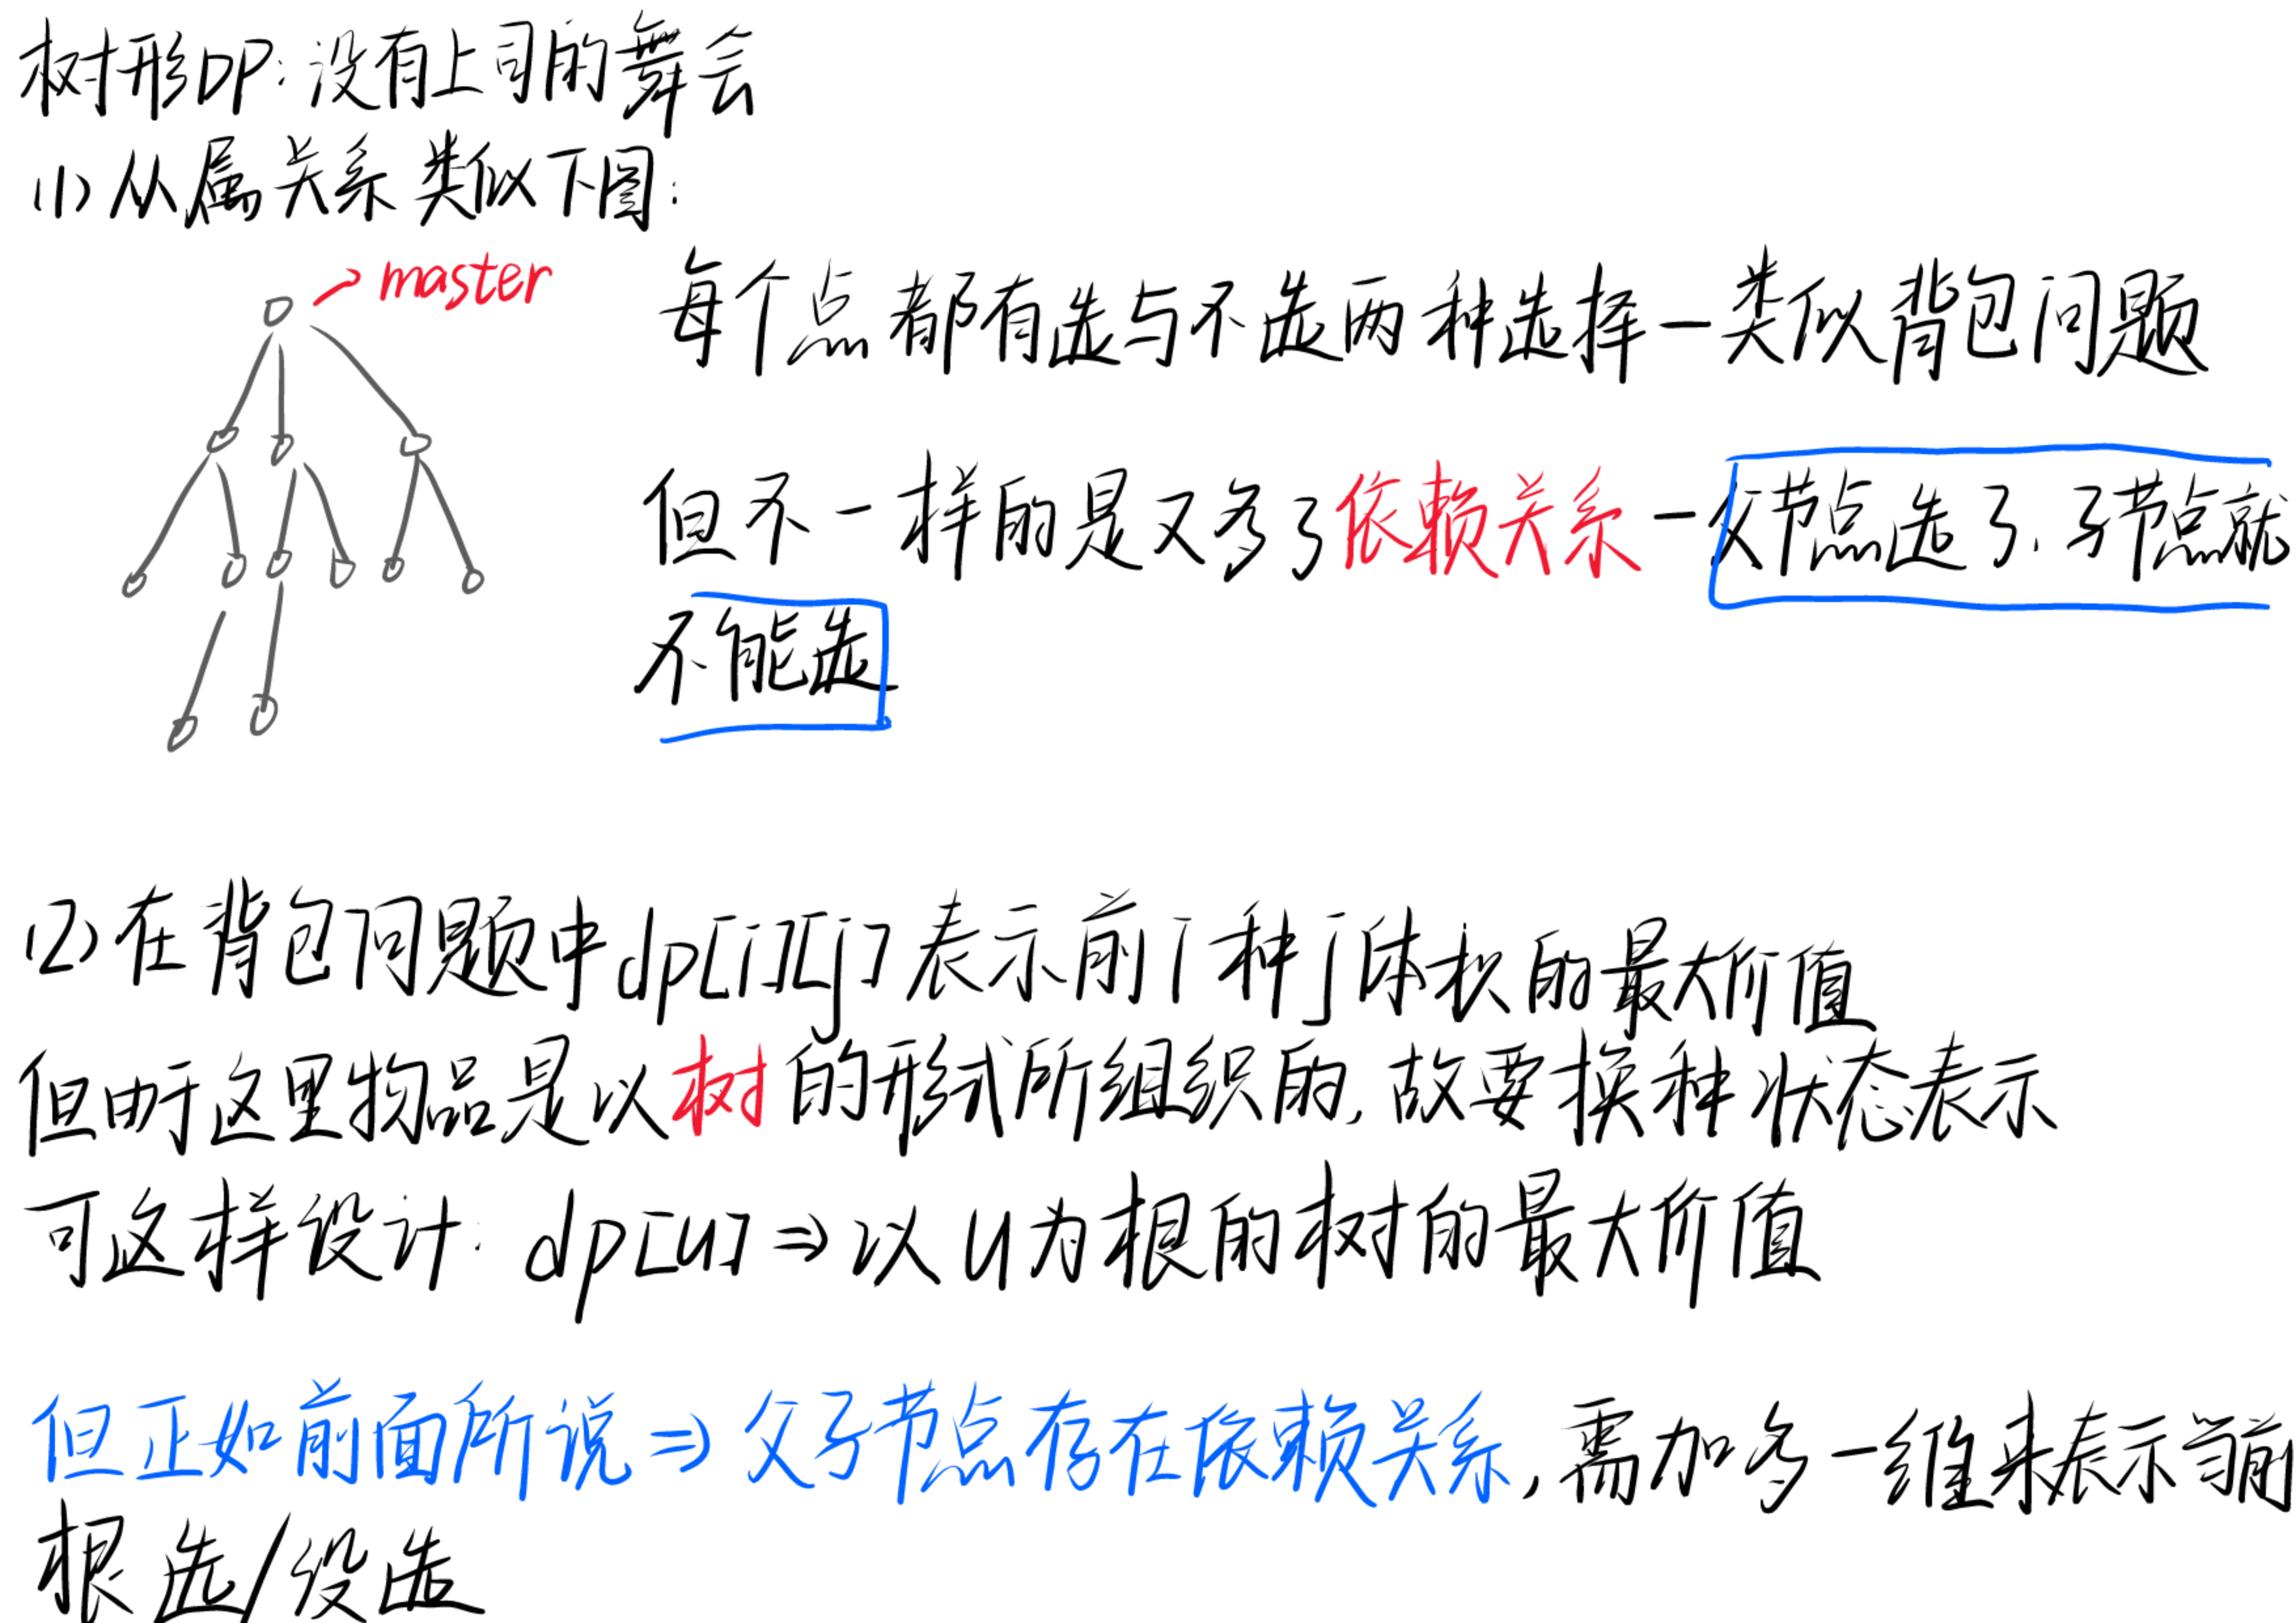 树形DP:没有上司的舞会
(1)从属关系类似下图:
master
每个点都有选与不选两种选择一类似背包问题
但不一样的是又多了依赖关系一父节点选了,子节点就
不能选
(2)在背包问题中dp[i][j]表示前i种j体积的最大价值
但由于这里物品是以树的形式所组织的,故要换种状态表示
可这样设计:dp[u]⇒以u为根的树的最大价值
但正如前面所说⇒父子节点存在依赖关系,需加多一维来表示当前
根选/没选